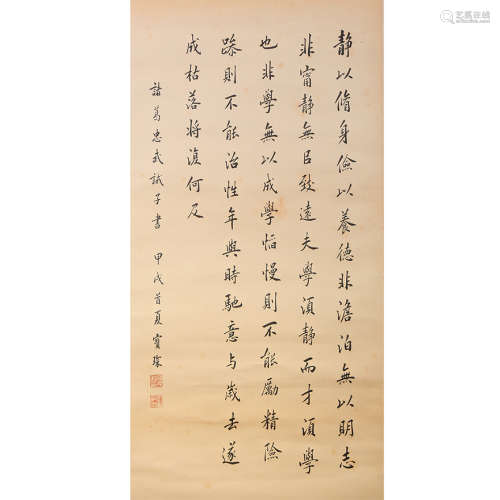 靜以脩身儉以養德非澹泊無以明志
非甯靜無㠯致遠夫學須靜而才須學
也非學無以成學慆慢則不能勵精險
躁則不能治性年與時馳意与歲去遂
成枯落將復何及
諸葛忠武誡子書 甲戌首夏寶琛